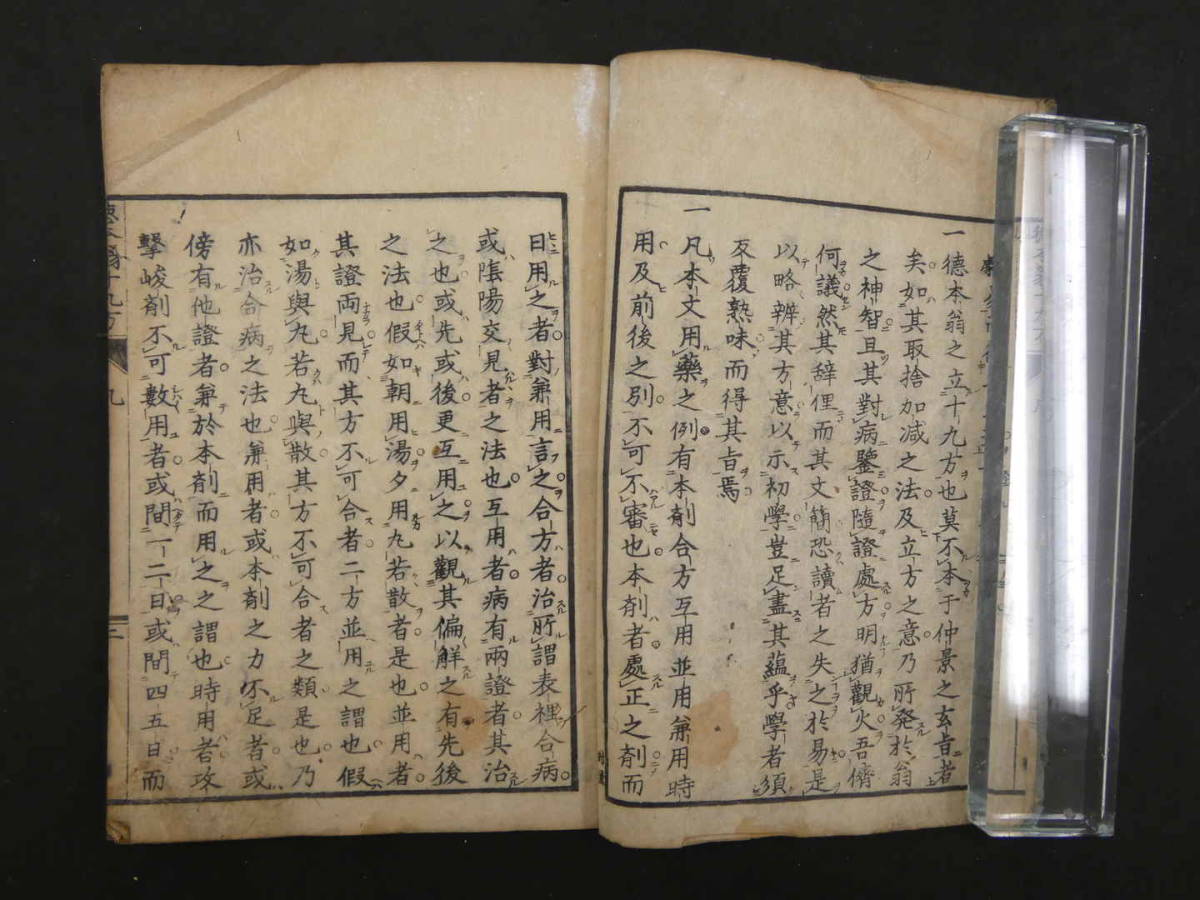 一德本翁之立十九方也莫不本于仲景之玄旨者
矣如其取捨加減之法及立方之意乃所發於翁
之神智且其對病鑒證隨證處方明猶觀火吾儕
何議然其辞俚而其文簡恐讀者之失之於易是
以略辨其方意以示初學豈足盡其蘊乎學者須
反覆熟味而得其旨焉
一凡本文用藥之例有本剤合方互用並用兼用時
用及前後之別不可不審也本剤者處正之剤而
日用之者對兼用言之合方者治所謂表裡合病
或陰陽交見者之法也互用者病有兩證者其治
之也或先或後更互用之以觀其偏解之有先後
之法也假如朝用湯夕用丸若散者是也並用者
其證両見而其方不可合者二方並用之謂也假
如湯與丸若丸與散其方不可合者之類是也乃
亦治合病之法也兼用者或本剤之力不足者或
傍有他證者兼於本剤而用之之謂也時用者攻
擊峻剤不可數用者或間一二日或間四五日而
十九方
九
三